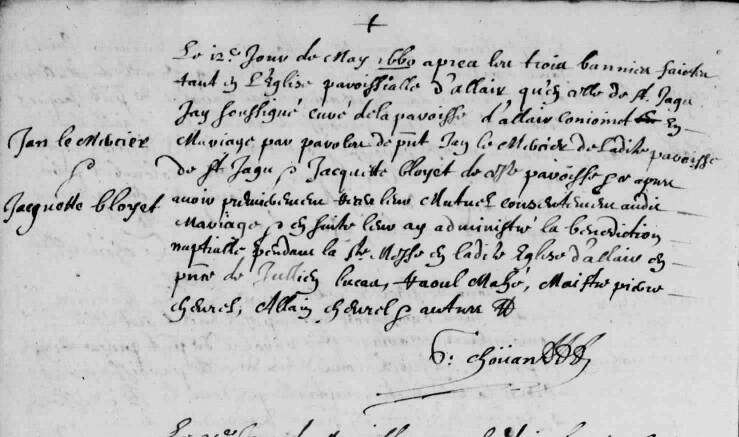 Le 12e Jour de May 1669 apres les trois bannies faictes
tant en L'Eglise paroissialle d'allair qu'en celle de St. Jagu
Jay soussigné curé de la paroisse d'allair conioinct en
Mariage par parolles de pnt Jan le Mercier de ladite paroisse
de St Jagu & Jacquette bloyet de cette paroisse & apres
avoir premierement leur Mutuel consentement audit
Mariage, & en suite leur ay administré la benediction
nuptialle pendant la Ste Messe en ladite Eglise d'allair en
pnce de Jullien lucas, Raoul Mahé, Maistre pierre
chevrel, Allain chevrel & autres
Jan le Mercier
&
Jacquette bloyet
G: choüan